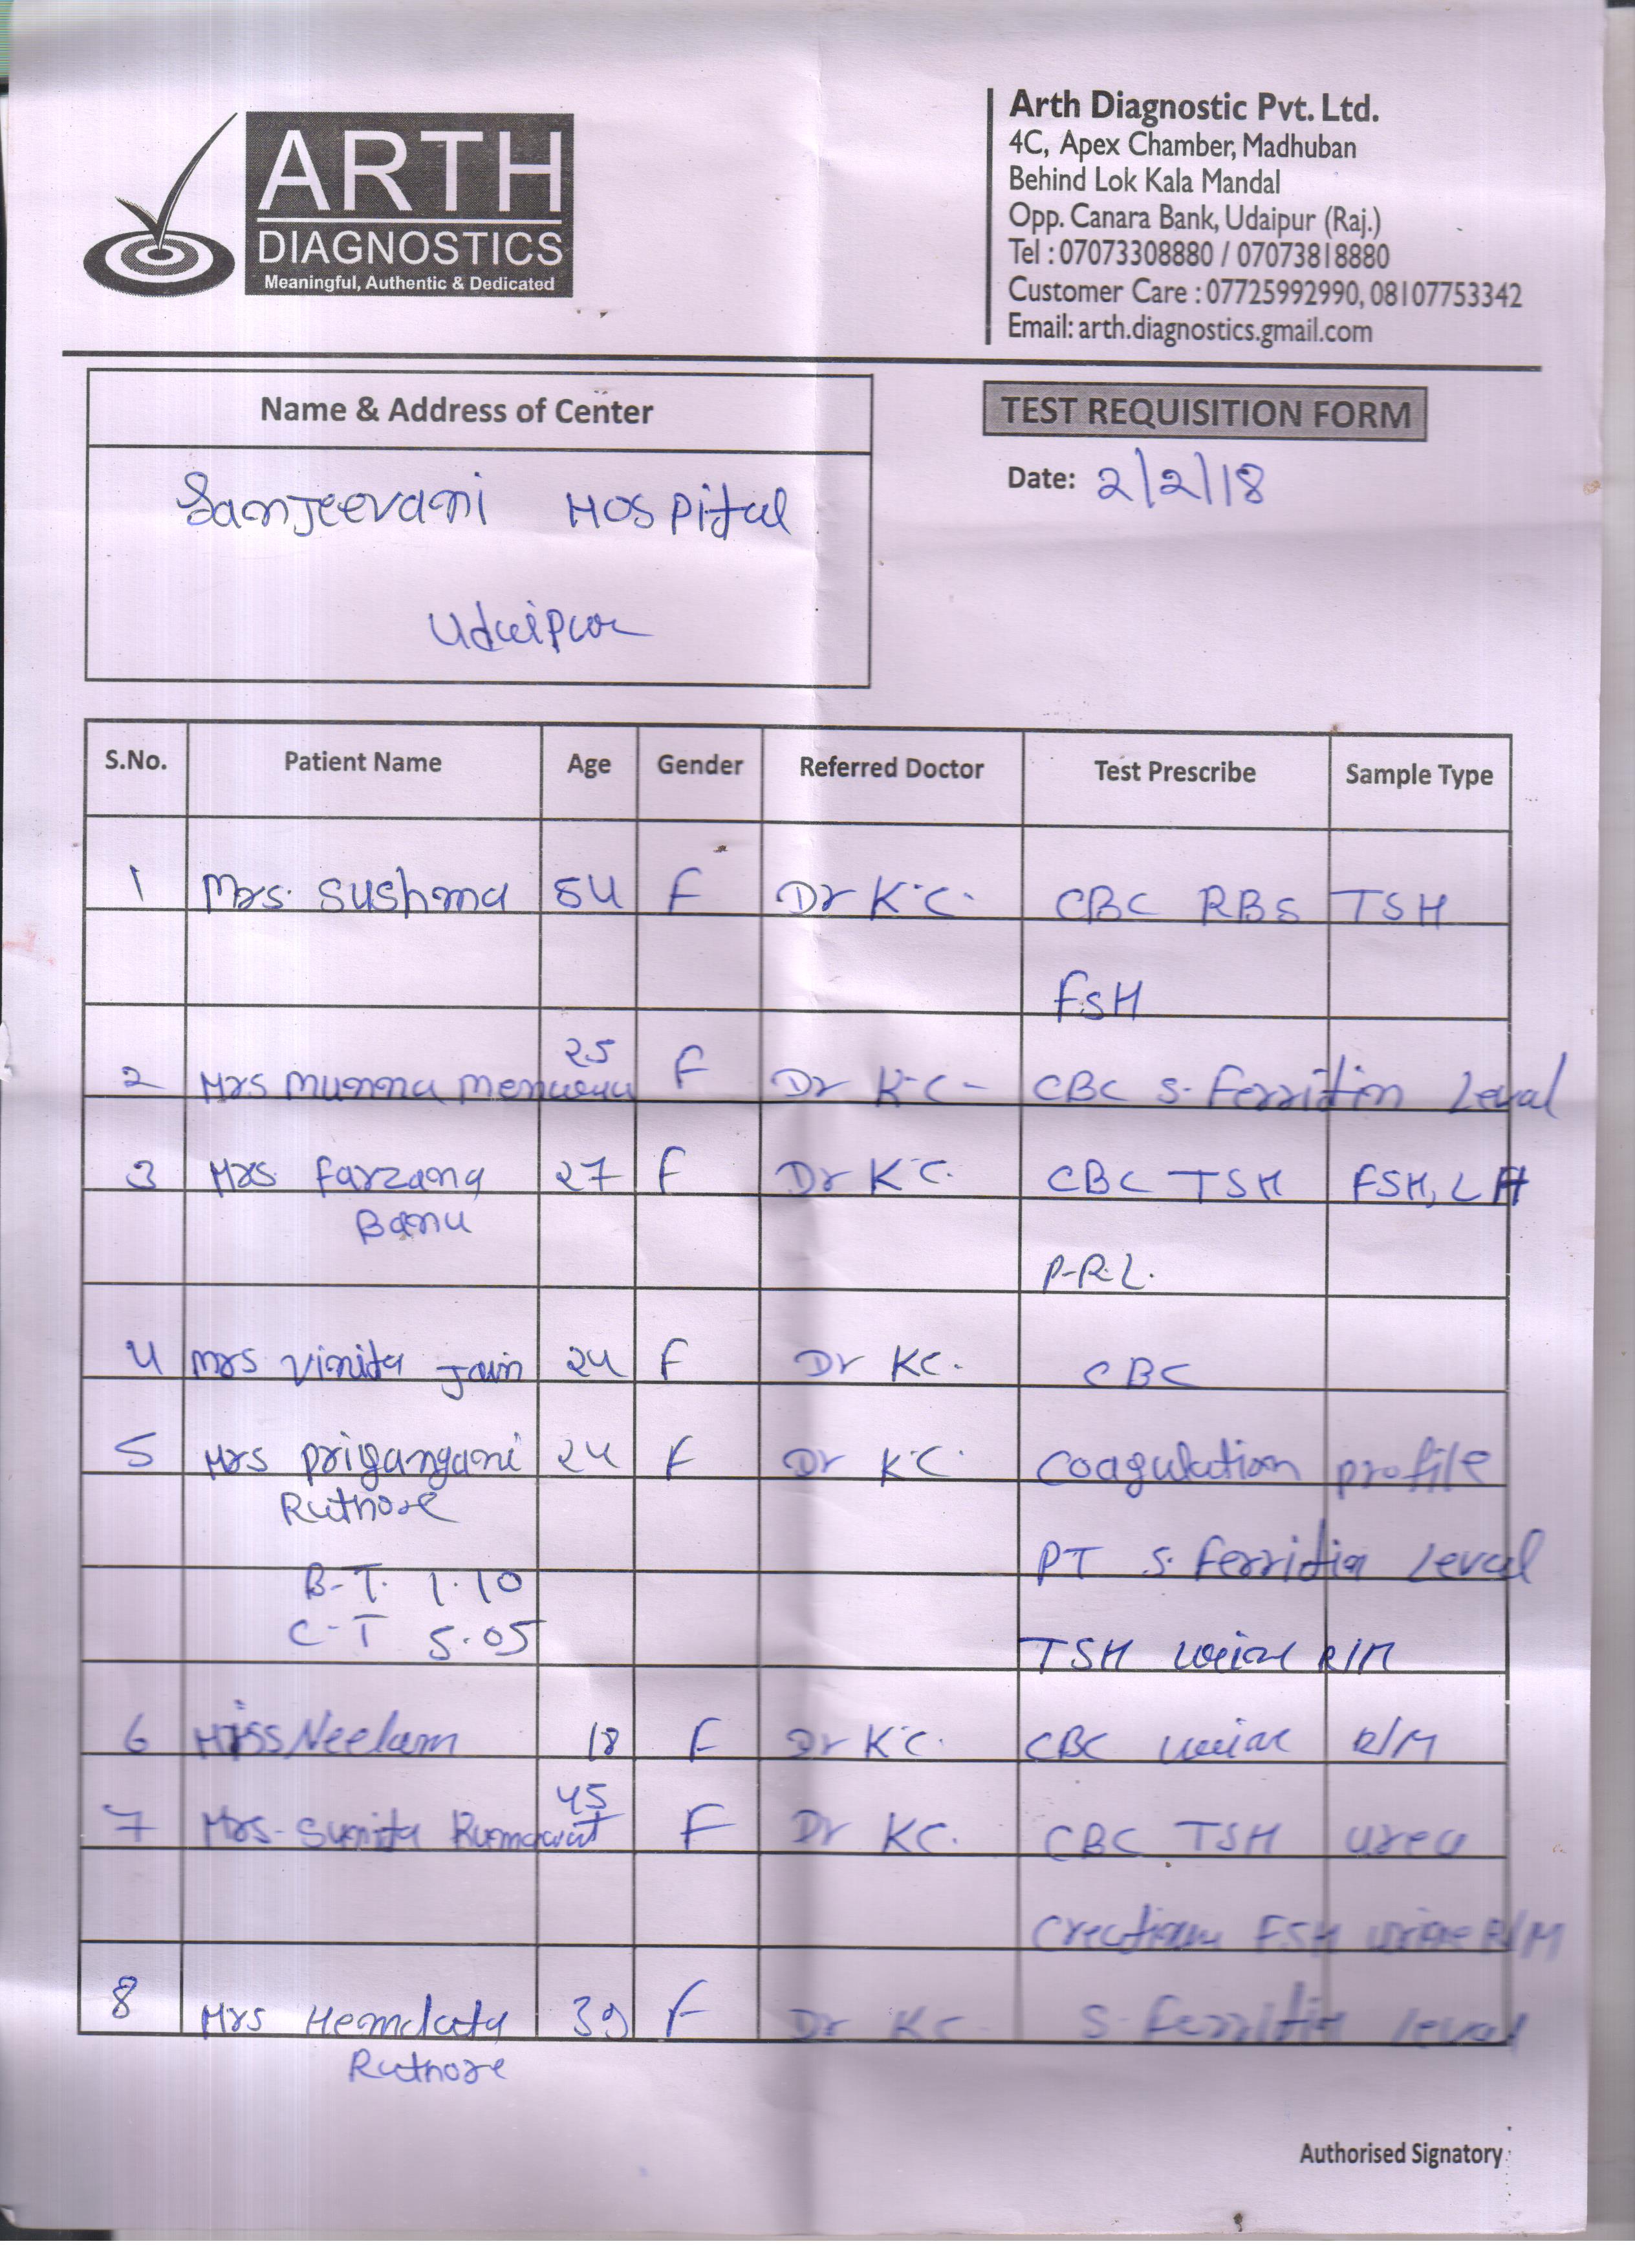 ARTH
DIAGNOSTICS
Meaningful, Authentic & Dedicated
Arth Diagnostic Pvt. Ltd.
4C, Apex Chamber, Madhuban
Behind Lok Kala Mandal
Opp. Canara Bank, Udaipur (Raj.)
Tel : 07073308880 / 07073818880
Customer Care : 07725992990, 08107753342
Email: arth.diagnostics.gmail.com
Name & Address of Center
Sanjeevani Hospital
Udaipur
TEST REQUISITION FORM
Date: 2/2/18
S.No. Patient Name Age Gender Referred Doctor Test Prescribe Sample Type
1 Mrs. Sushma 54 F Dr K.C. CBC RBS TSH
FSH
25
2 Mrs Munna F Dr K.C- CBC S. Ferritin Leval
3 Mrs Farzana 27 F Dr K.C. CBC TSH FSH, LH
Banu
P-R.L.
4 Mrs Vinita Jain 24 F Dr KC. CBC
5 Mrs 24 F Dr K.C. Coagulation profile
Ruthore
PT S. Ferritin Leval
B-T. 1.10
C-T 5.05
TSH R/M
6 Miss Neelam 18 F Dr K.C. CBC R/M
45
7 Mrs. Sunita F Dr KC. CBC TSH urea
FSH urine R/M
8 Mrs Hemlata 39 F Dr KC- S-Ferritin leval
Ruthore
Authorised Signatory